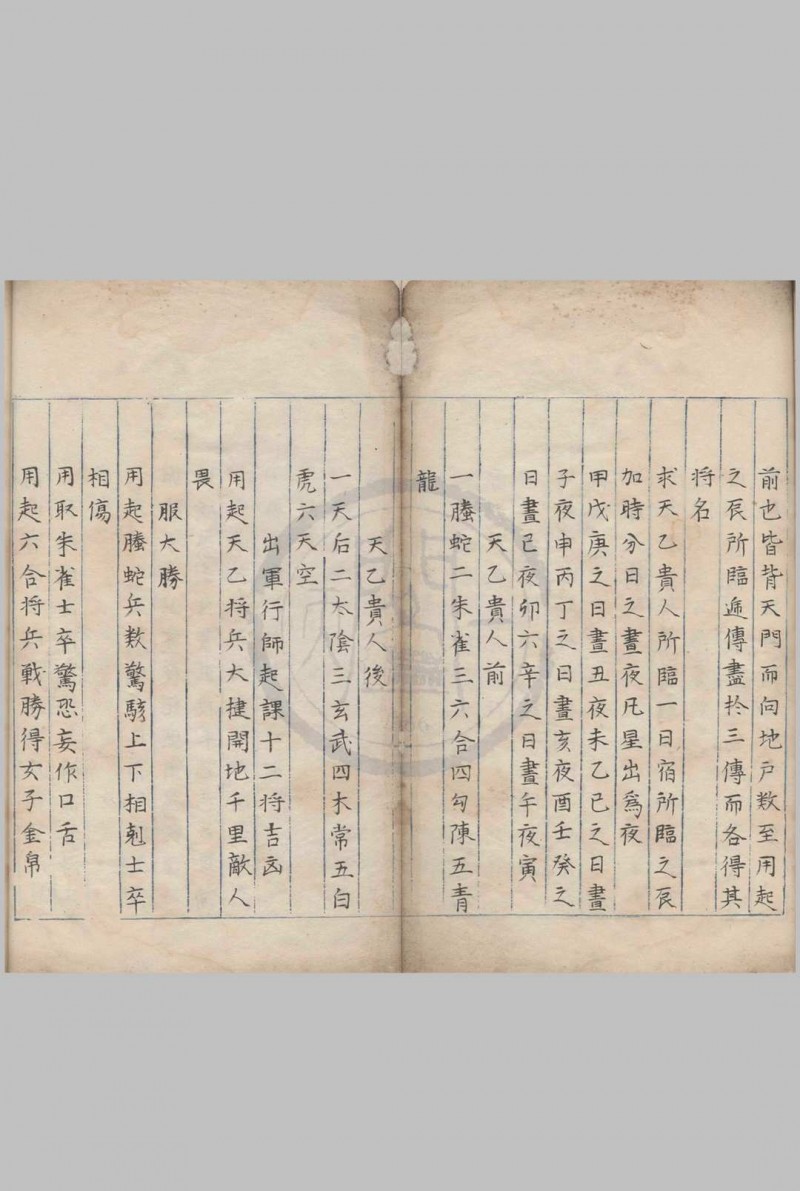 前也皆背天門而向地戸数至用起
之辰所臨逓傳盡扵三傳而各得其
将名
求天乙貴人所臨一日宿所臨之辰
加時分日之晝夜凡星出爲夜
甲戊庚之日晝丑夜未乙已之日晝
子夜申丙丁之日晝亥夜酉壬癸之
日晝已夜卯六辛之日晝午夜寅
天乙貴人前
一螣蛇二朱雀三六合四勾陳五青
龍
天乙貴人後
一天后二太陰三玄武四木常五白
虎六天空
出軍行師起課十二将吉凶
用起天乙将兵大揵開地千里敵人
畏
服大勝
用起螣蛇兵欵驚駭上下相剋士卒
相傷
用取朱雀士卒驚恐妄作口舌
用起六合将兵戰勝得女子金帛